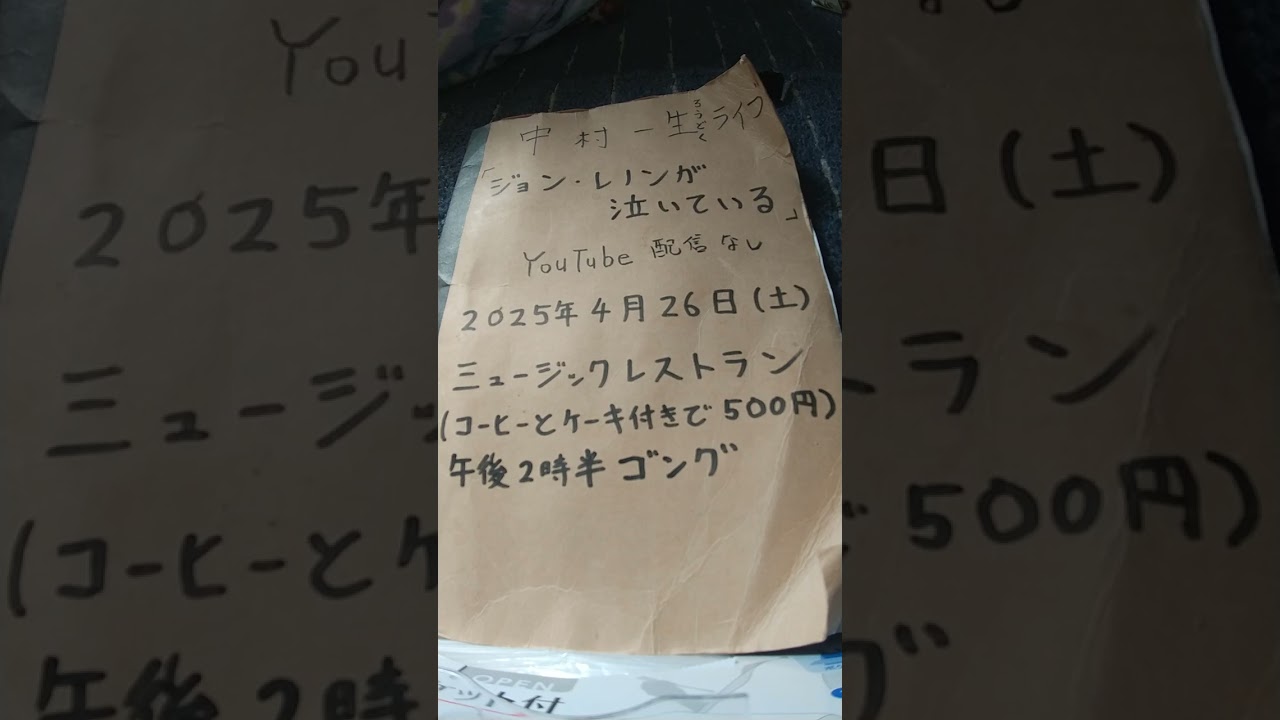 中村一生ろうどくライブ
「ジョン・レノンが
泣いている」
YouTube 配信なし
2025年4月26日(土)
ミュージックレストラン
(コーヒーとケーキ付きで500円)
午後2時半ゴング
OPEN
ケット付